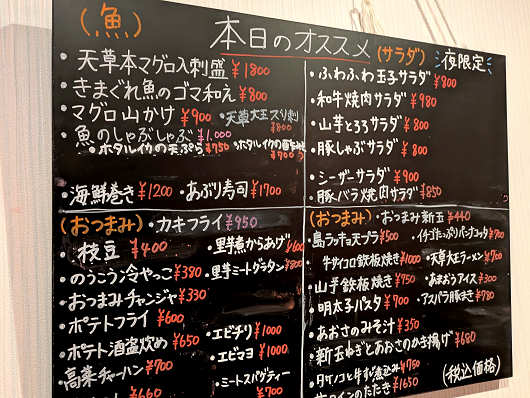 本日のオススメ
(魚)
・天草本マグロ入刺盛 ¥1800
・きまぐれ魚のゴマ和え ¥800
・マグロ山かけ ¥900 ・天草大王ズリ刺 ¥800
・魚のしゃぶしゃぶ ¥1,000
・ホタルイカの天ぷら ¥750 ・ホタルイカの
・海鮮巻き ¥1200 ・あぶり寿司 ¥1700
(サラダ) 夜限定
・ふわふわ玉子サラダ ¥800
・和牛焼肉サラダ ¥980
・山芋とろろサラダ ¥800
・豚しゃぶサラダ ¥800
・シーザーサラダ ¥900
・豚バラ焼肉サラダ ¥850
(おつまみ) ・カキフライ ¥950
・枝豆 ¥400 ・里芋煮からあげ ¥600
・のうこう冷やっこ ¥380 ・里芋ミートグラタン ¥800
・おつまみチャンジャ ¥330
・ポテトフライ ¥600 ・エビチリ ¥1000
・ポテト酒盗炒め ¥650 ・エビマヨ ¥1000
高菜チャーハン ¥700 ・ミートスパゲティー ¥700
(おつまみ) ・おつまみ新玉 ¥440
・島ラッキョ天プラ ¥500 ・イチゴたっぷりパンナコッタ ¥700
・牛サイコロ鉄板焼き ¥1000 ・天草大王ラーメン ¥700
・山芋鉄板焼き ¥750 ・あまおうアイス ¥300
・明太子パスタ ¥900 ・アスパラ豚まき ¥780
・あおさのみそ汁 ¥350
・新玉ねぎとあおさのかき揚げ ¥680
・タケノコと牛すじ煮込み ¥750
のたたき ¥1650
(税込価格)